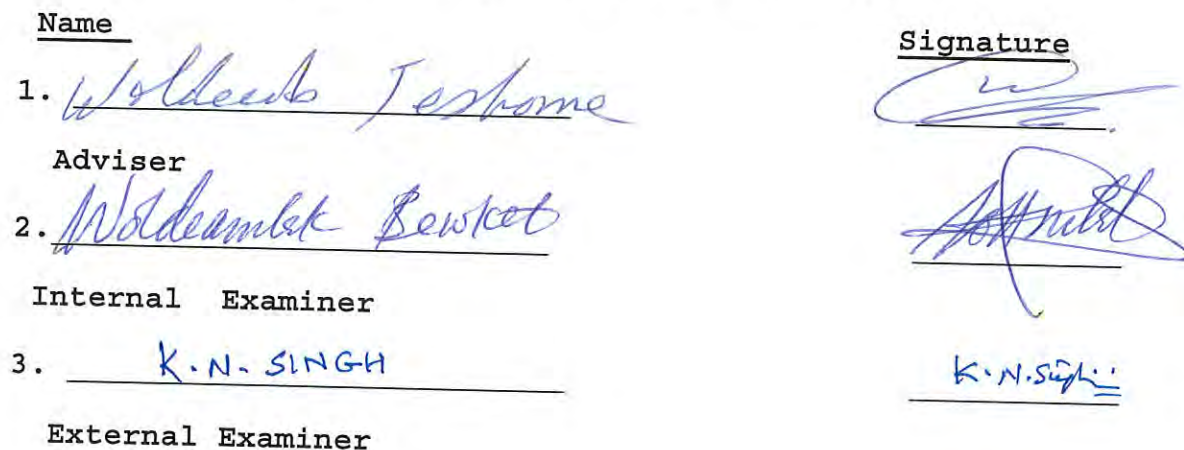 Name Signature
1. Woldeab Teshome
Adviser
2. Woldeamlak Bewket
Internal Examiner
3. K.N. SINGH K.N.Singh
External Examiner